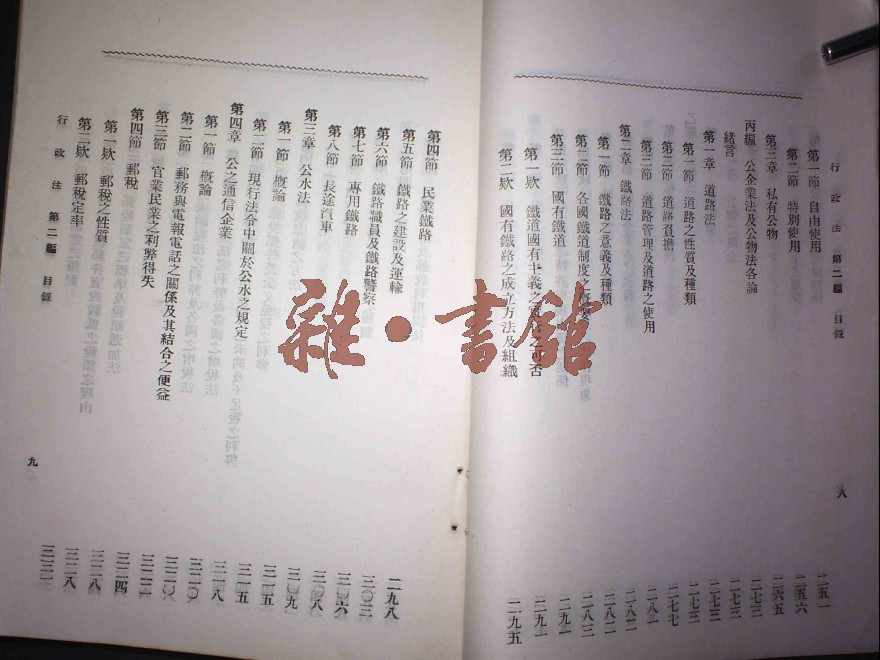 行政法 第二編 目錄
八
第一節 自由使用 二五一
第二節 特別使用 二五六
第三章 私有公物 二六五
丙編 公企業法及公物法各論 二七三
緒言 二七三
第一章 道路法 二七三
第一節 道路之性質及種類 二七三
第二節 道路負擔 二七七
第三節 道路管理及道路之使用 二八一
第二章 鐵路法 二八二
第一節 鐵路之意義及種類 二八二
第二節 各國鐵道制度之概要 二八三
第三節 國有鐵道 二九一
第一欵 鐵道國有主義之實質之可否 二九一
第二欵 國有鐵路之成立方法及組織 二九五
第四節 民業鐵路 二九八
第五節 鐵路之建設及運輸 三〇三
第六節 鐵路職員及鐵路警察 三〇六
第七節 專用鐵路 三〇八
第八節 長途汽車 三〇九
第三章 公水法 三一五
第一節 概論 三一五
第二節 現行法令中關於公水之規定 三一八
第四章 公之通信企業 三二〇
第一節 概論 三二〇
第二節 郵務與電報電話之關係及其結合之便益 三二二
第三節 官業民業之利弊得失 三二四
第四節 郵稅 三二八
第一欵 郵稅之性質 三二八
第二欵 郵稅定率 三三一
行政法 第二編 目錄
九
雜●書館